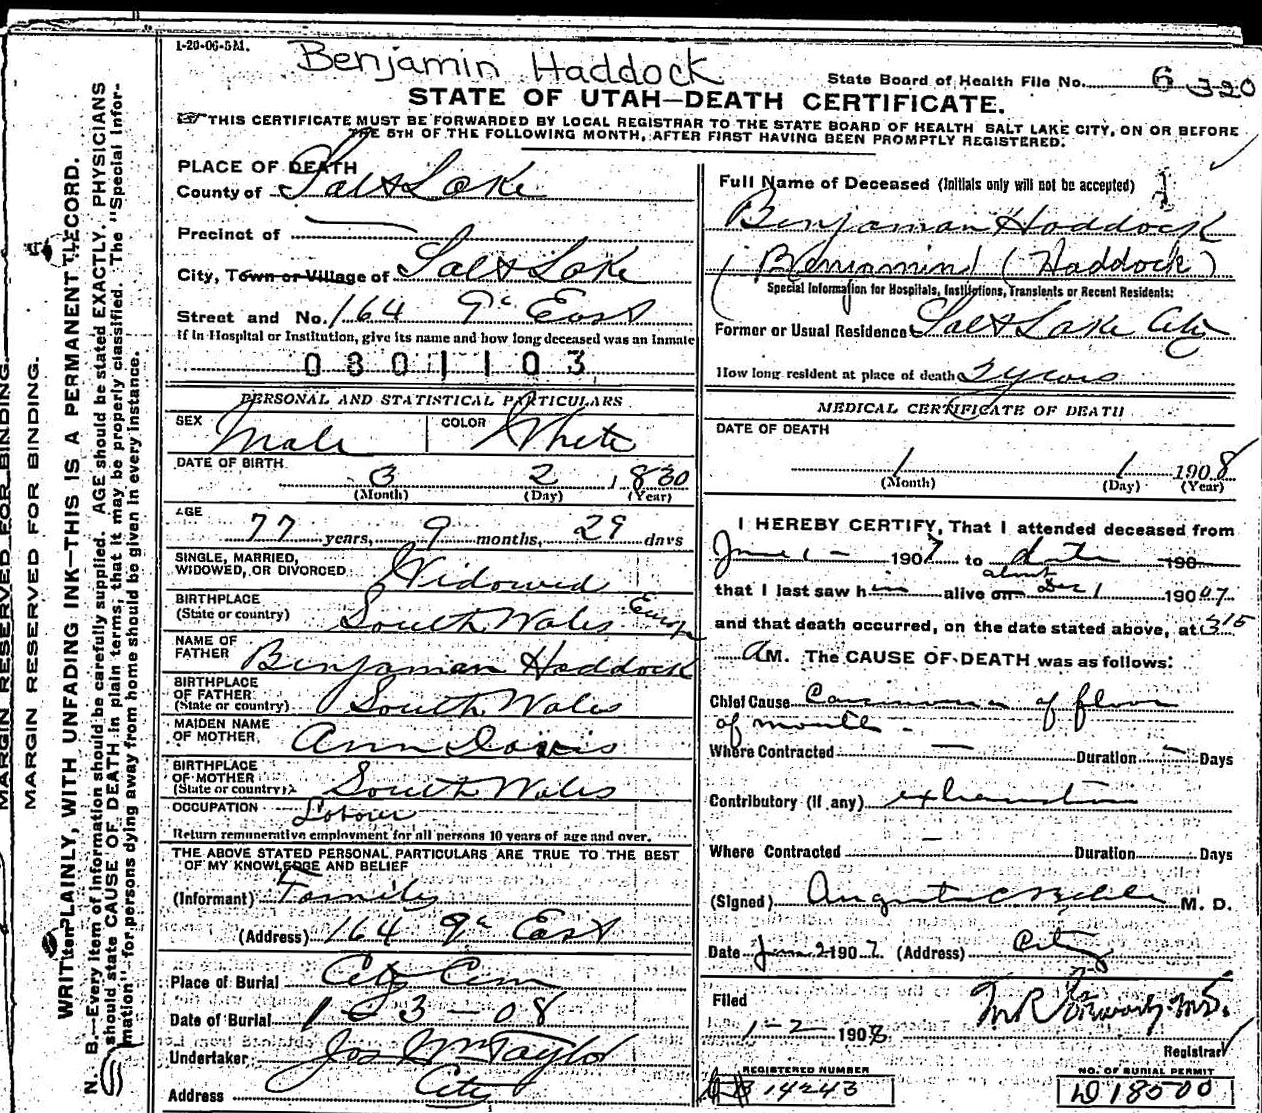 1-20-06-5M.
Benjamin Haddock
State Board of Health File No. 6 320
STATE OF UTAH—DEATH CERTIFICATE.
☞THIS CERTIFICATE MUST BE FORWARDED BY LOCAL REGISTRAR TO THE STATE BOARD OF HEALTH SALT LAKE CITY, ON OR BEFORE
THE 5TH OF THE FOLLOWING MONTH, AFTER FIRST HAVING BEEN PROMPTLY REGISTERED.
MARGIN RESERVED FOR BINDING.
MARGIN RESERVED FOR BINDING.
WRITE PLAINLY, WITH UNFADING INK—THIS IS A PERMANENT RECORD.
N. B.—Every item of information should be carefully supplied. AGE should be stated EXACTLY. PHYSICIANS
should state CAUSE OF DEATH in plain terms, that it may be properly classified. The "Special Infor-
mation" for persons dying away from home should be given in every instance.
PLACE OF DEATH
County of Salt Lake
Precinct of
City, Town or Village of Salt Lake
Street and No. 164 9th East
If in Hospital or Institution, give its name and how long deceased was an Inmate
0801103
PERSONAL AND STATISTICAL PARTICULARS
SEX Male COLOR White
DATE OF BIRTH
3 2 1830
(Month) (Day) (Year)
AGE
77 years, 9 months, 29 days
SINGLE, MARRIED,
WIDOWED, OR DIVORCED Widowed
BIRTHPLACE
(State or country) South Wales Europ
NAME OF
FATHER Benjaman Haddock
BIRTHPLACE
OF FATHER
(State or country) South Wales
MAIDEN NAME
OF MOTHER Ann Davis
BIRTHPLACE
OF MOTHER
(State or country) South Wales
OCCUPATION Labour
Return remunerative employment for all persons 10 years of age and over.
THE ABOVE STATED PERSONAL PARTICULARS ARE TRUE TO THE BEST
OF MY KNOWLEDGE AND BELIEF
(Informant) Family
(Address) 164 9th East
Place of Burial City Cem
Date of Burial 1-3-08
Undertaker Jos Wm Taylor
Address City
Full Name of Deceased (Initials only will not be accepted)
Benjaman Haddock
(Benjamin) (Haddock)
Special Information for Hospitals, Institutions, Transients or Recent Residents:
Former or Usual Residence Salt Lake City
How long resident at place of death 2 years
MEDICAL CERTIFICATE OF DEATH
DATE OF DEATH
1 1 1908
(Month) (Day) (Year)
I HEREBY CERTIFY, That I attended deceased from
June 1 - 1907 to date 190
that I last saw him alive on about Dec 1 1907
and that death occurred, on the date stated above, at 3 15
A M. The CAUSE OF DEATH was as follows:
Chief Cause Carcinoma of floor
of mouth -
Where Contracted — Duration — Days
Contributory (if any) exhaustion
Where Contracted — Duration Days
(Signed) M. D.
Date 2 190 (Address) City
Filed
1-2- 1908
Registrar
REGISTERED NUMBER
14243
NO. OF BURIAL PERMIT
D 18500